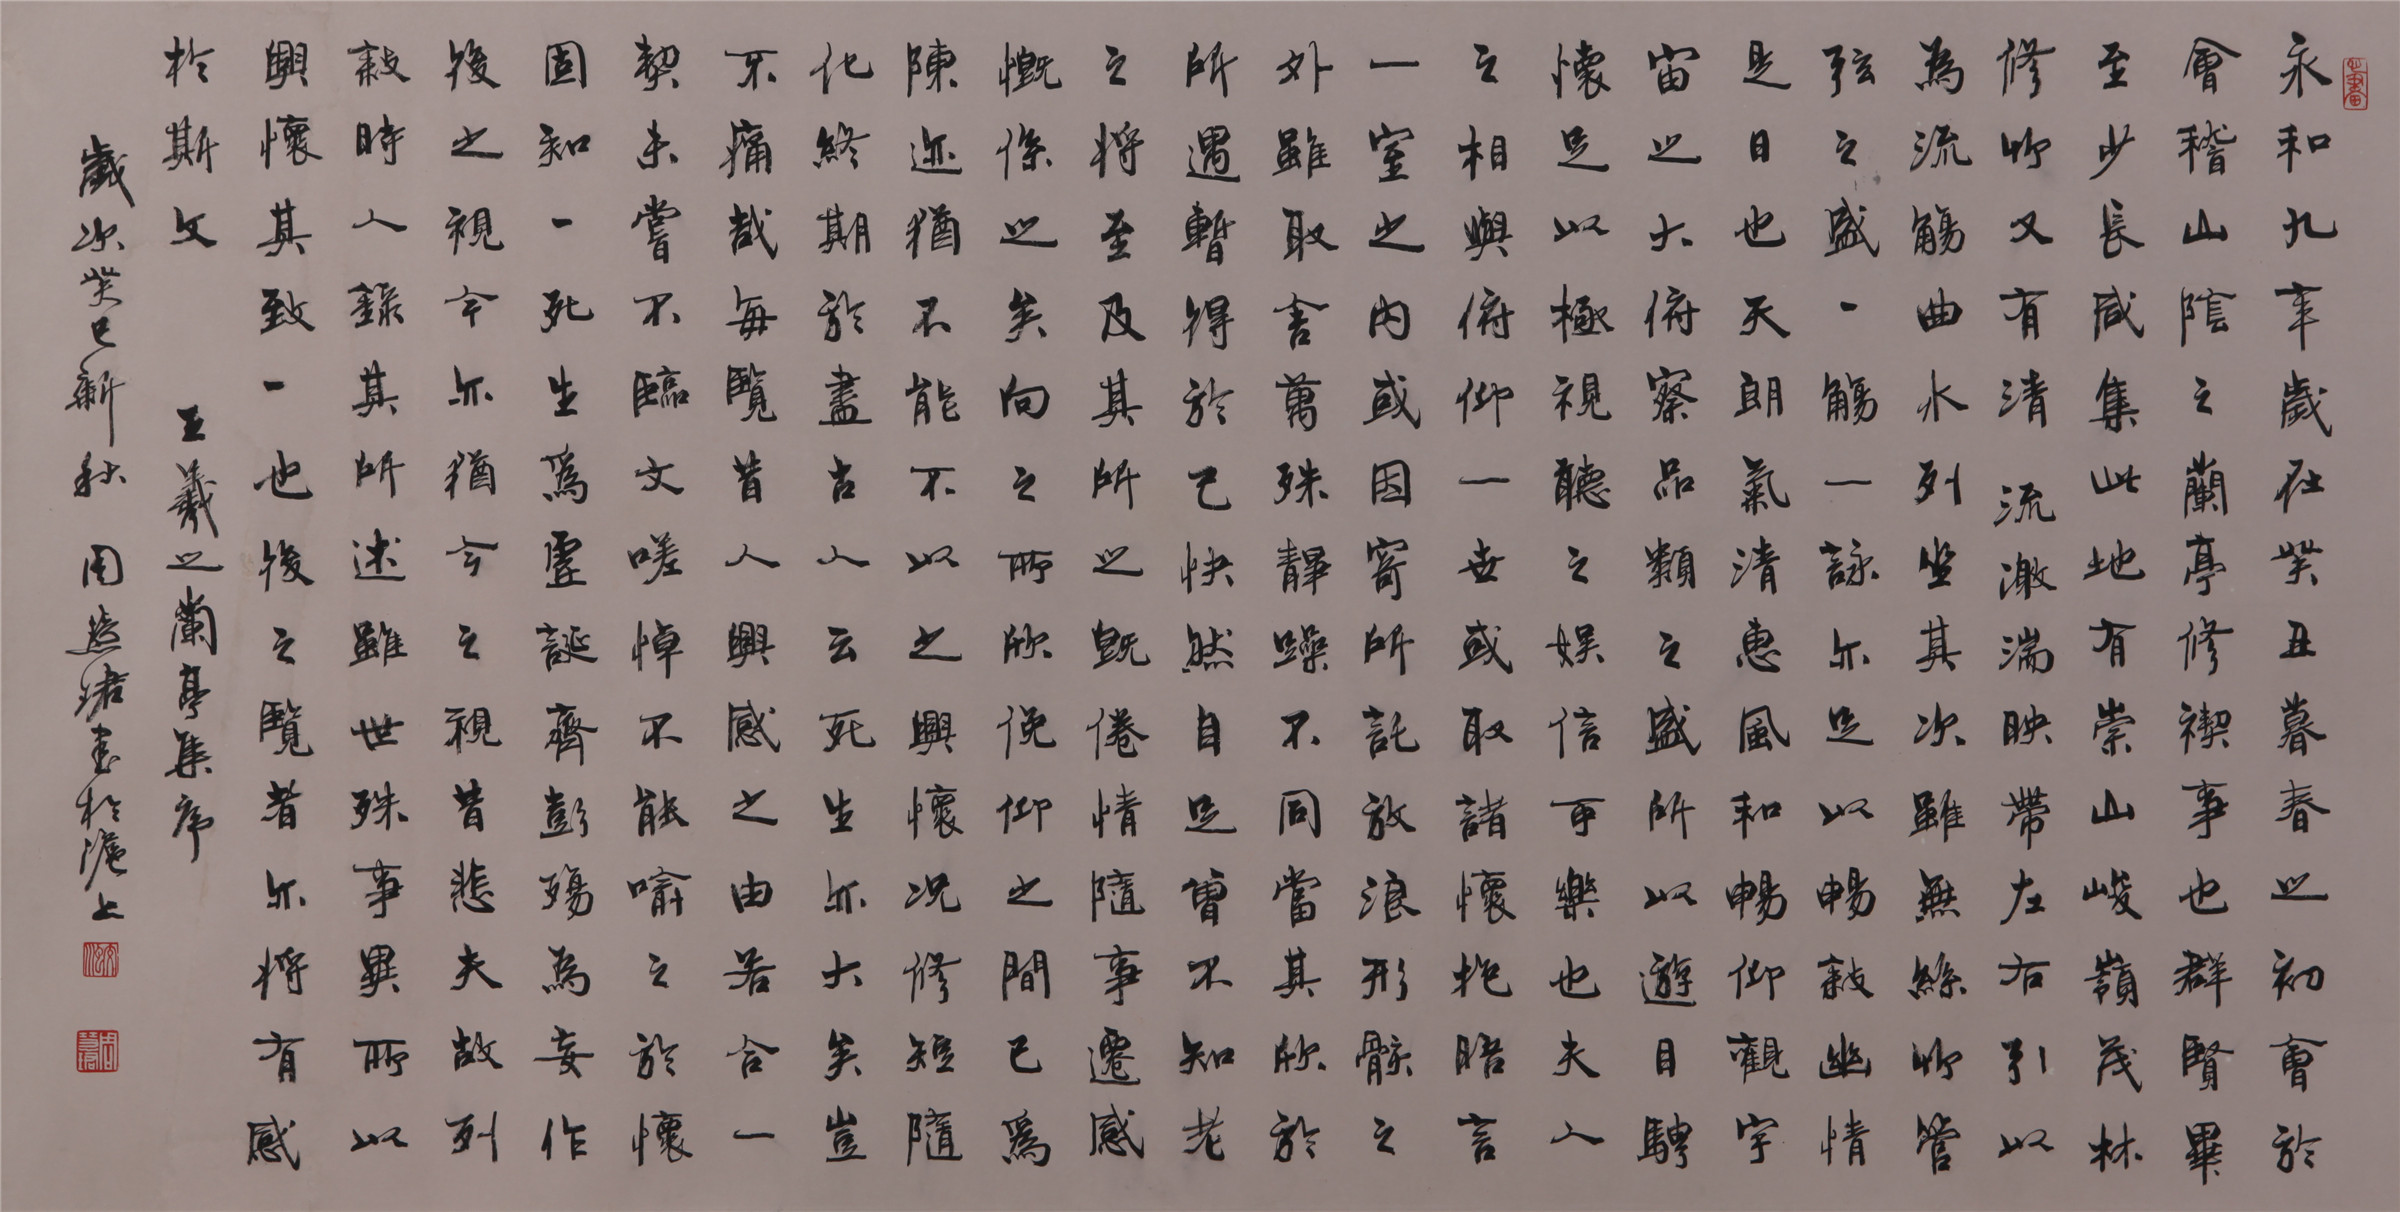 永和九年歲在癸丑暮春之初會於
會稽山陰之蘭亭修禊事也群賢畢
至少長咸集此地有崇山峻嶺茂林
修竹又有清流激湍映帶左右引以
為流觴曲水列坐其次雖無絲竹管
弦之盛一觴一詠亦足以暢敘幽情
是日也天朗氣清惠風和暢仰觀宇
宙之大俯察品類之盛所以遊目騁
懷足以極視聽之娛信可樂也夫人
之相與俯仰一世或取諸懷抱晤言
一室之內或因寄所託放浪形骸之
外雖取舍萬殊靜躁不同當其欣於
所遇暫得於己快然自足曾不知老
之將至及其所之既倦情隨事遷感
慨係之矣向之所欣俛仰之間已為
陳迹猶不能不以之興懷況修短隨
化終期於盡古人云死生亦大矣豈
不痛哉每覽昔人興感之由若合一
契未嘗不臨文嗟悼不能喻之於懷
固知一死生為虛誕齊彭殤為妄作
後之視今亦猶今之視昔悲夫故列
敘時人錄其所述雖世殊事異所以
興懷其致一也後之覽者亦將有感
於斯文 王羲之蘭亭集序
歲次癸巳新秋 周慧珺書於滬上